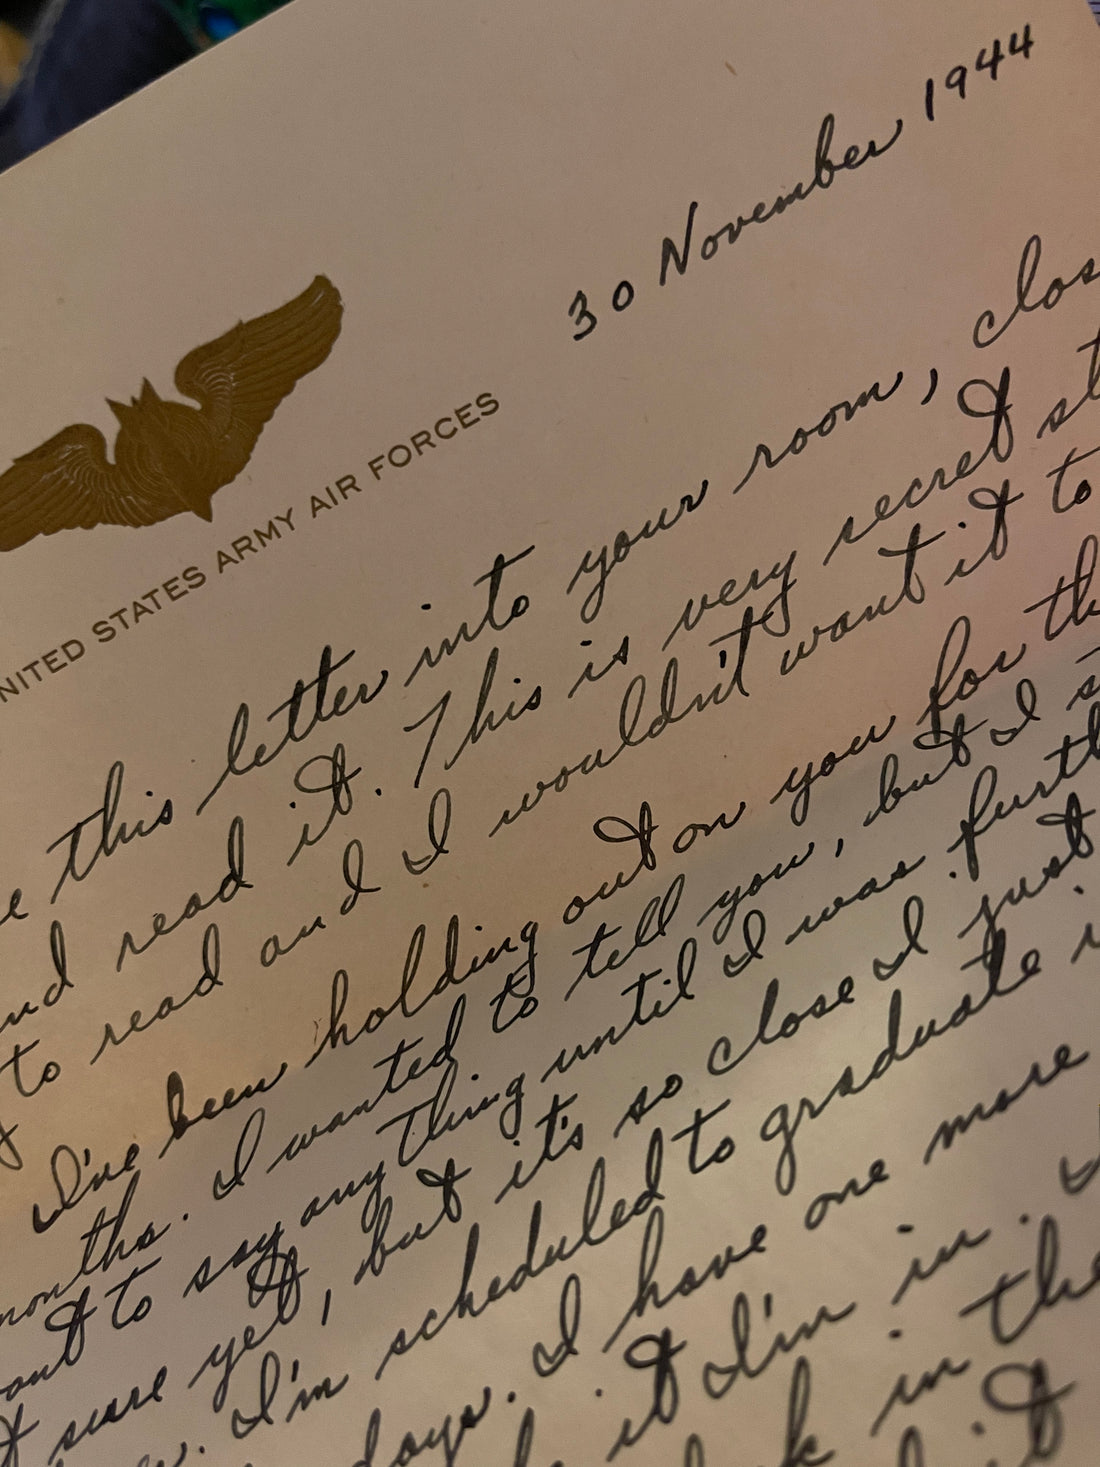 30 November 1944
UNITED STATES ARMY AIR FORCES
this letter into your room, clos
and read it. This is very secret st
to read and I wouldn't want it to
I've been holding out on you for th
months. I wanted to tell you, but I s
want to say anything until I was furth
sure yet, but it's so close I just
I'm scheduled to graduate i
days. I have one more
it I'm in. I
in the
it